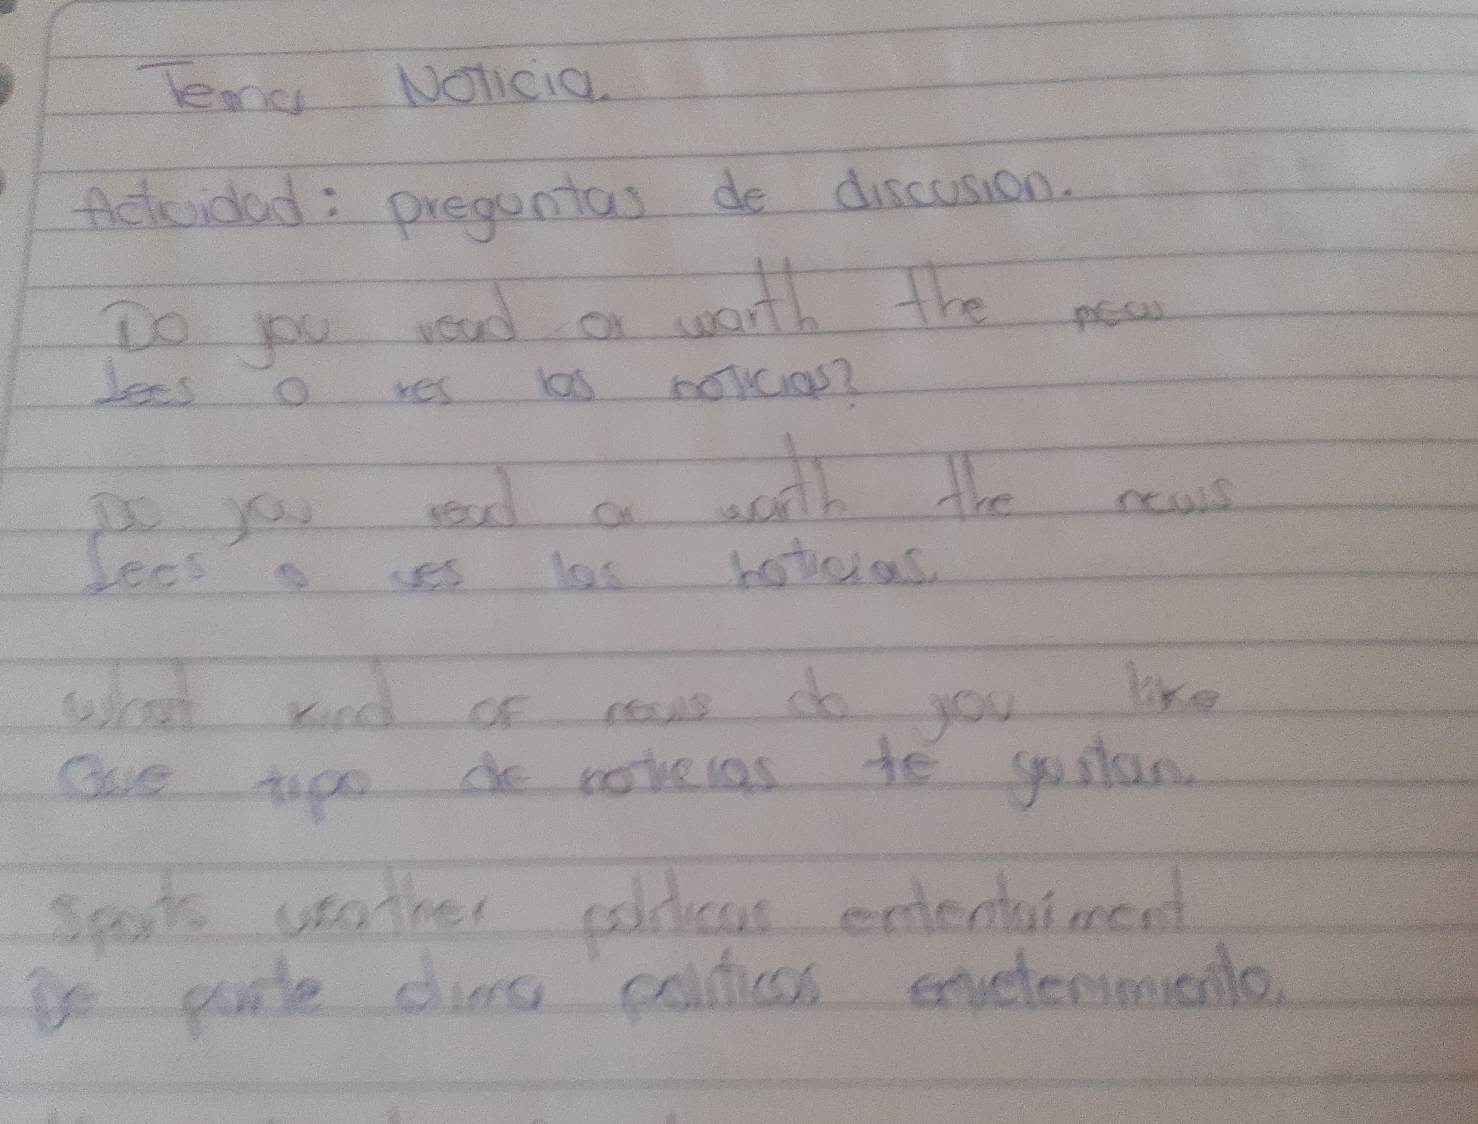 Tema Noticia.
Actividad: preguntas de discusion.
Do you read or warth the new
Lees o ves las noticias?
Do you read or warth the news
Lees o ves las noticias.
What kind of news do you like
Que tipo de noticias te gustan.
Sports weather politicas entertaiment
De porte clima politicas